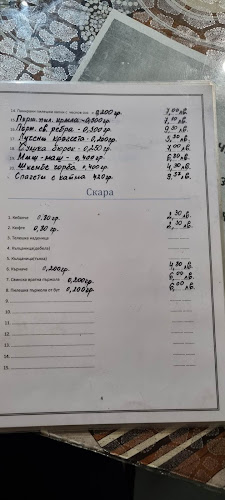 14. Панирани пилешки хапки с корнфлейкс 0,200гр. 7,00лв.
15. Порж. пил. крилца - 0,300гр 7,50лв.
16. Порж. св. ребра - 0,300гр 9,50лв.
17. Пуешки крокета - 0,200гр. 5,50лв.
18. Чушка бюрек - 0,250гр 7,00лв.
19. Миш - маш - 0,400гр 6,50лв.
20. Шкембе чорба 0,400гр 4,50лв.
Спагети с кайма 420гр. 9,50лв.
Скара
1. Кебапче 0,80гр. 2,30лв.
2. Кюфте 0,80гр. 2,30лв.
3. Телешка наденица
4. Карначе
5. Кълцаница(пилешка)
6. Кърначе 0,200гр. 4,80лв.
7. Свинска вратна пържола 0,200гр. 6,00лв.
8. Пилешка пържола от бут 0,200гр. 6,00лв.
9.
10.
11.
12.
13.
14.
15.
4